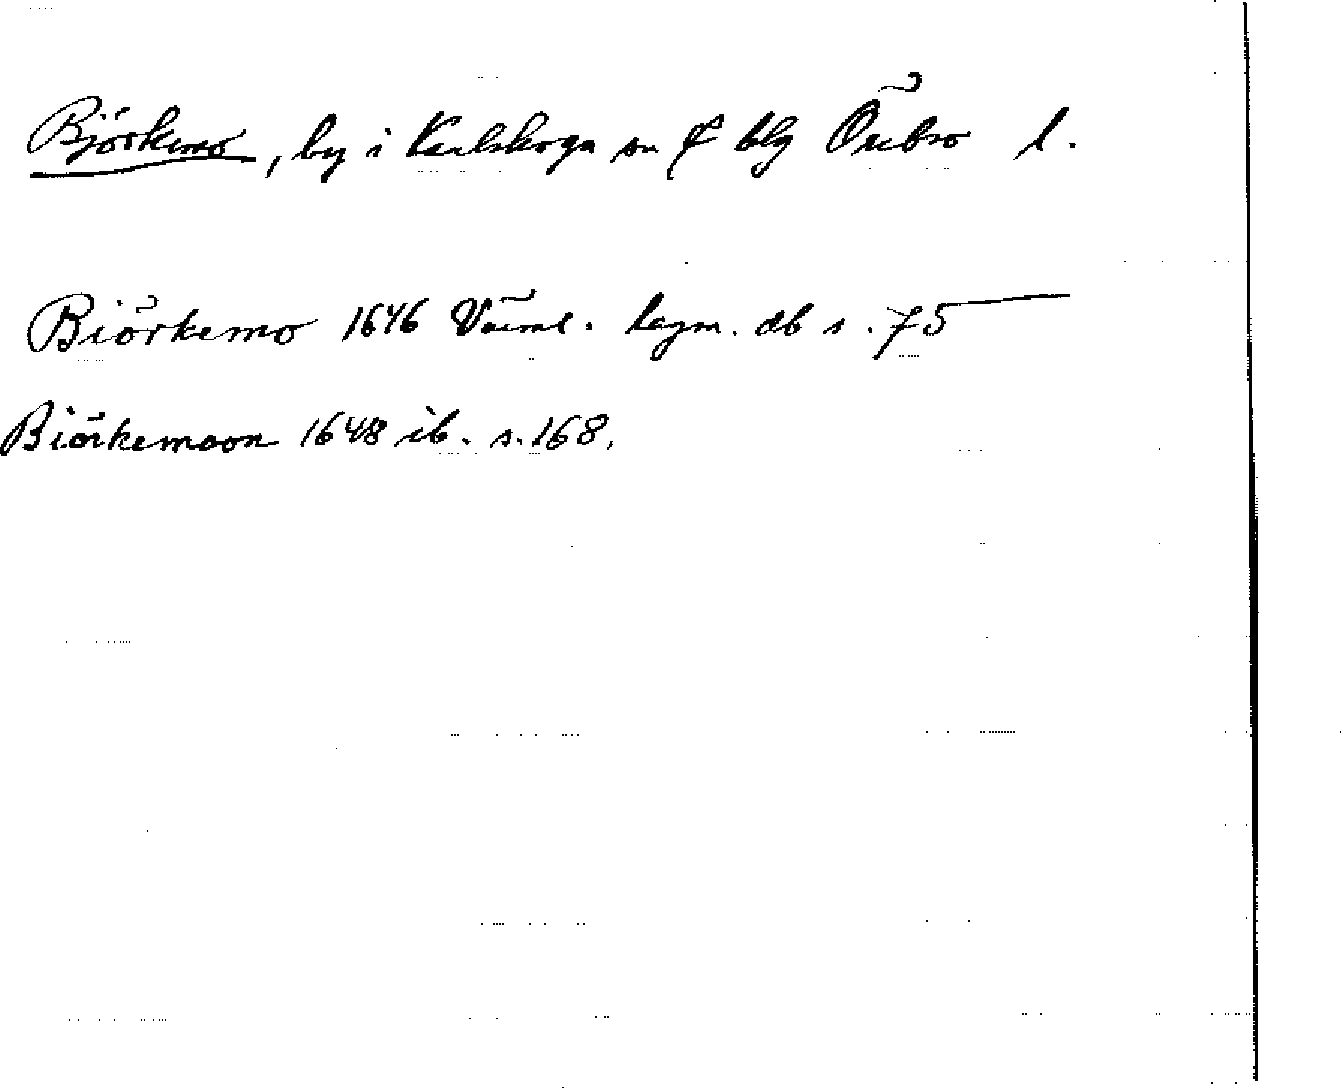 Björkemo, by i Karlskoga sn & blg Örebro l.
Biörkemo 1646 Värml. lagm. db s. 75
Biörkemoon 1648 ib. s. 168.